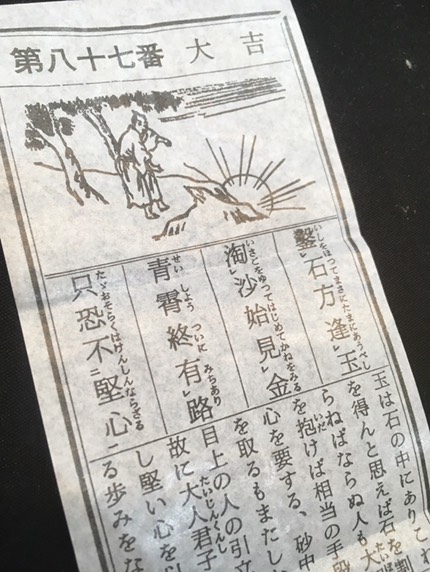 第八十七番 大吉
鑿レ石方逢レ玉
いしをほつてまさにたまにあうべし
淘レ沙始見レ金
いさごをゆつてはじめてかねをみる
青霄終有レ路
せいしようついにみちあり
只恐不二堅心一
たゞおそらくはけんしんならざる
玉は石の中にありこれ
を得んと思えば石を割
らねばならぬ人も大
を抱けば相当の手段
心を要する、砂中
を取るもまたしか
目上の人の引立
故に大人君子
し堅い心を以
る歩みをな